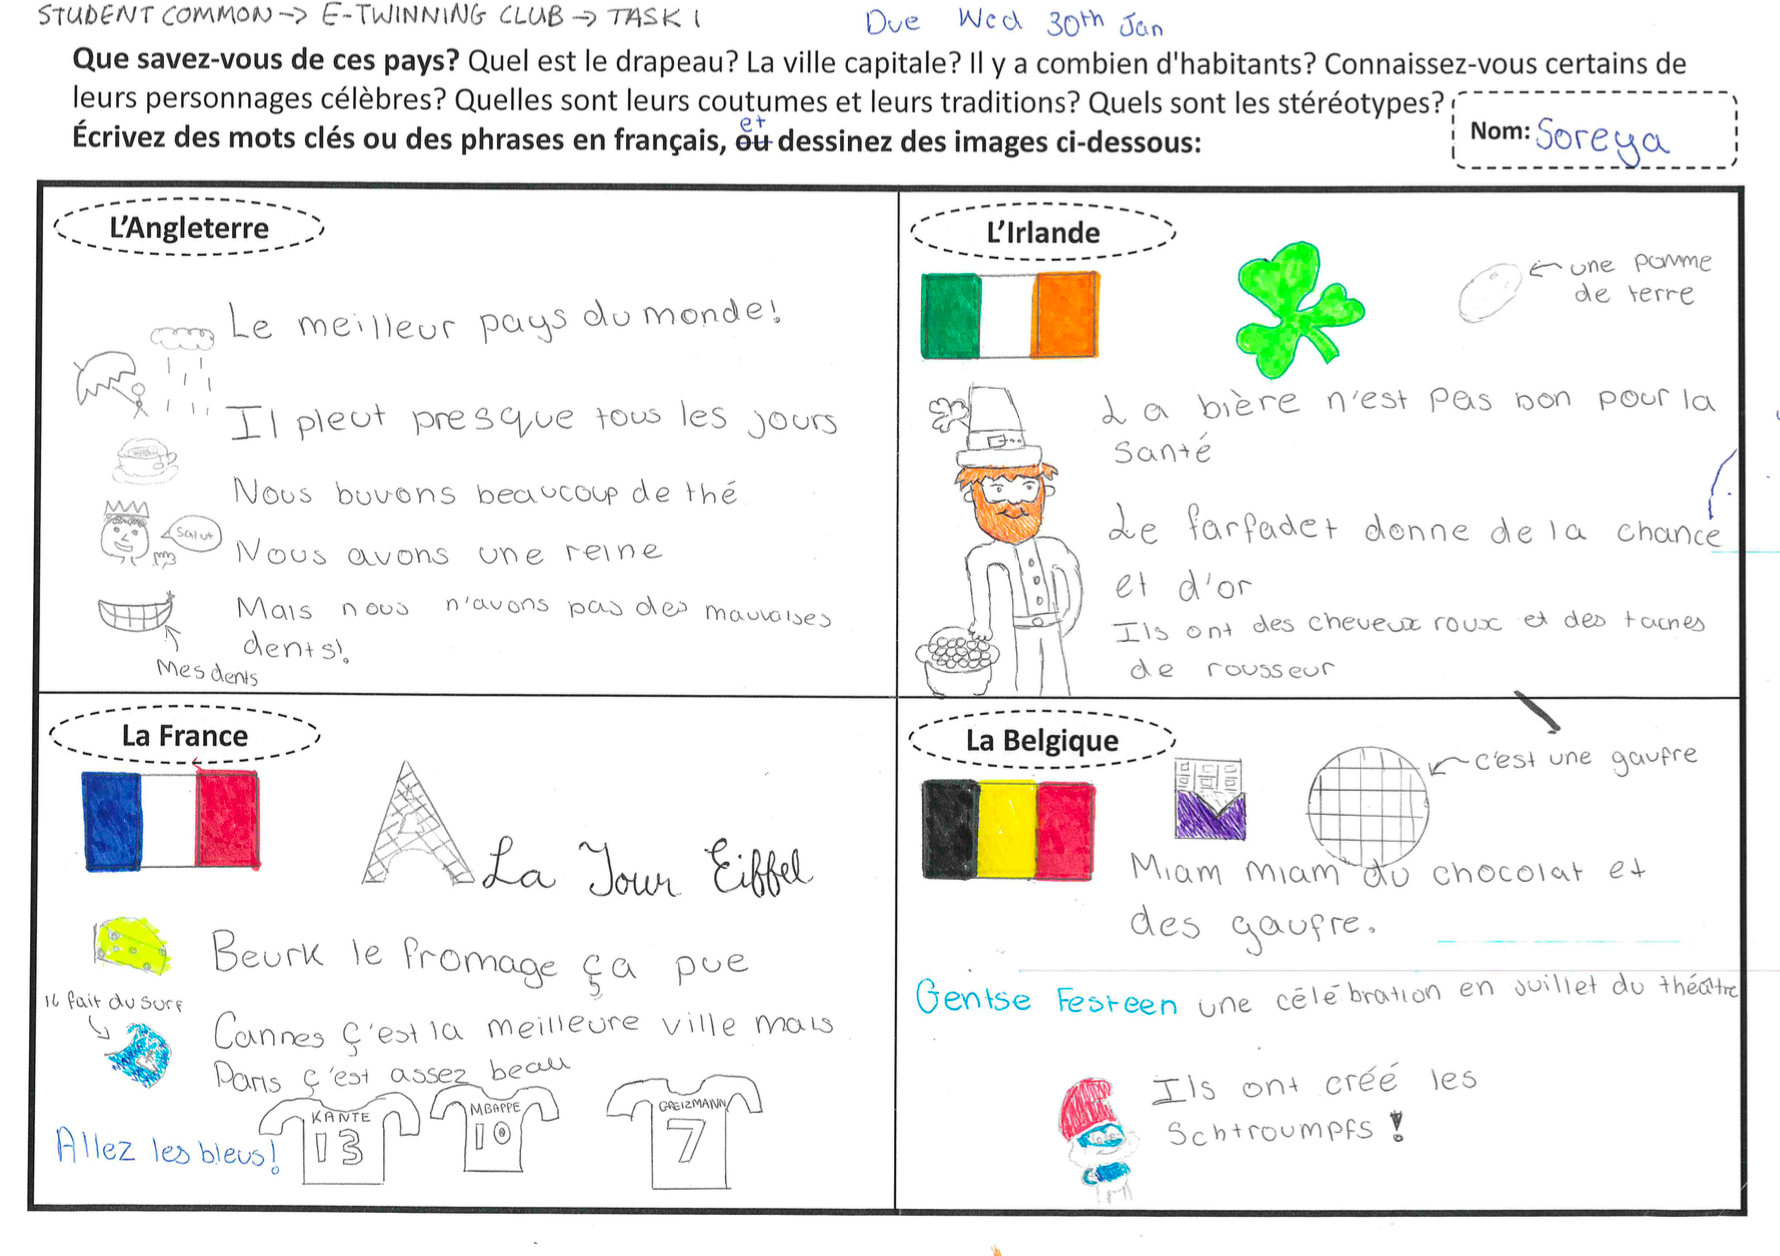 STUDENT COMMON → E-TWINNING CLUB → TASK 1
Due Wed 30th Jan
Que savez-vous de ces pays? Quel est le drapeau? La ville capitale? Il y a combien d'habitants? Connaissez-vous certains de
leurs personnages célèbres? Quelles sont leurs coutumes et leurs traditions? Quels sont les stéréotypes?
et
Écrivez des mots clés ou des phrases en français, ou dessinez des images ci-dessous:
Nom: Soreya
L'Angleterre
Le meilleur pays du monde!
Il pleut presque tous les jours
Nous buvons beaucoup de thé
Salut
Nous avons une reine
Mais nous n'avons pas des mauvaises
dents!
Mes dents
L'Irlande
une pomme
de terre
La bière n'est pas bon pour la
santé
Le farfadet donne de la chance
et d'or
Ils ont des cheveux roux et des taches
de rousseur
La France
La Tour Eiffel
Beurk le fromage ça pue
il fait du surf
Cannes ç'est la meilleure ville mais
Paris ç'est assez beau
Allez les bleus!
KANTE
13
MBAPPE
10
GREIZMANN
7
La Belgique
c'est une gaufre
Miam miam du chocolat et
des gaufre.
Gentse Festeen une célébration en juillet du théâtre
Ils ont créé les
Schtroumpfs!